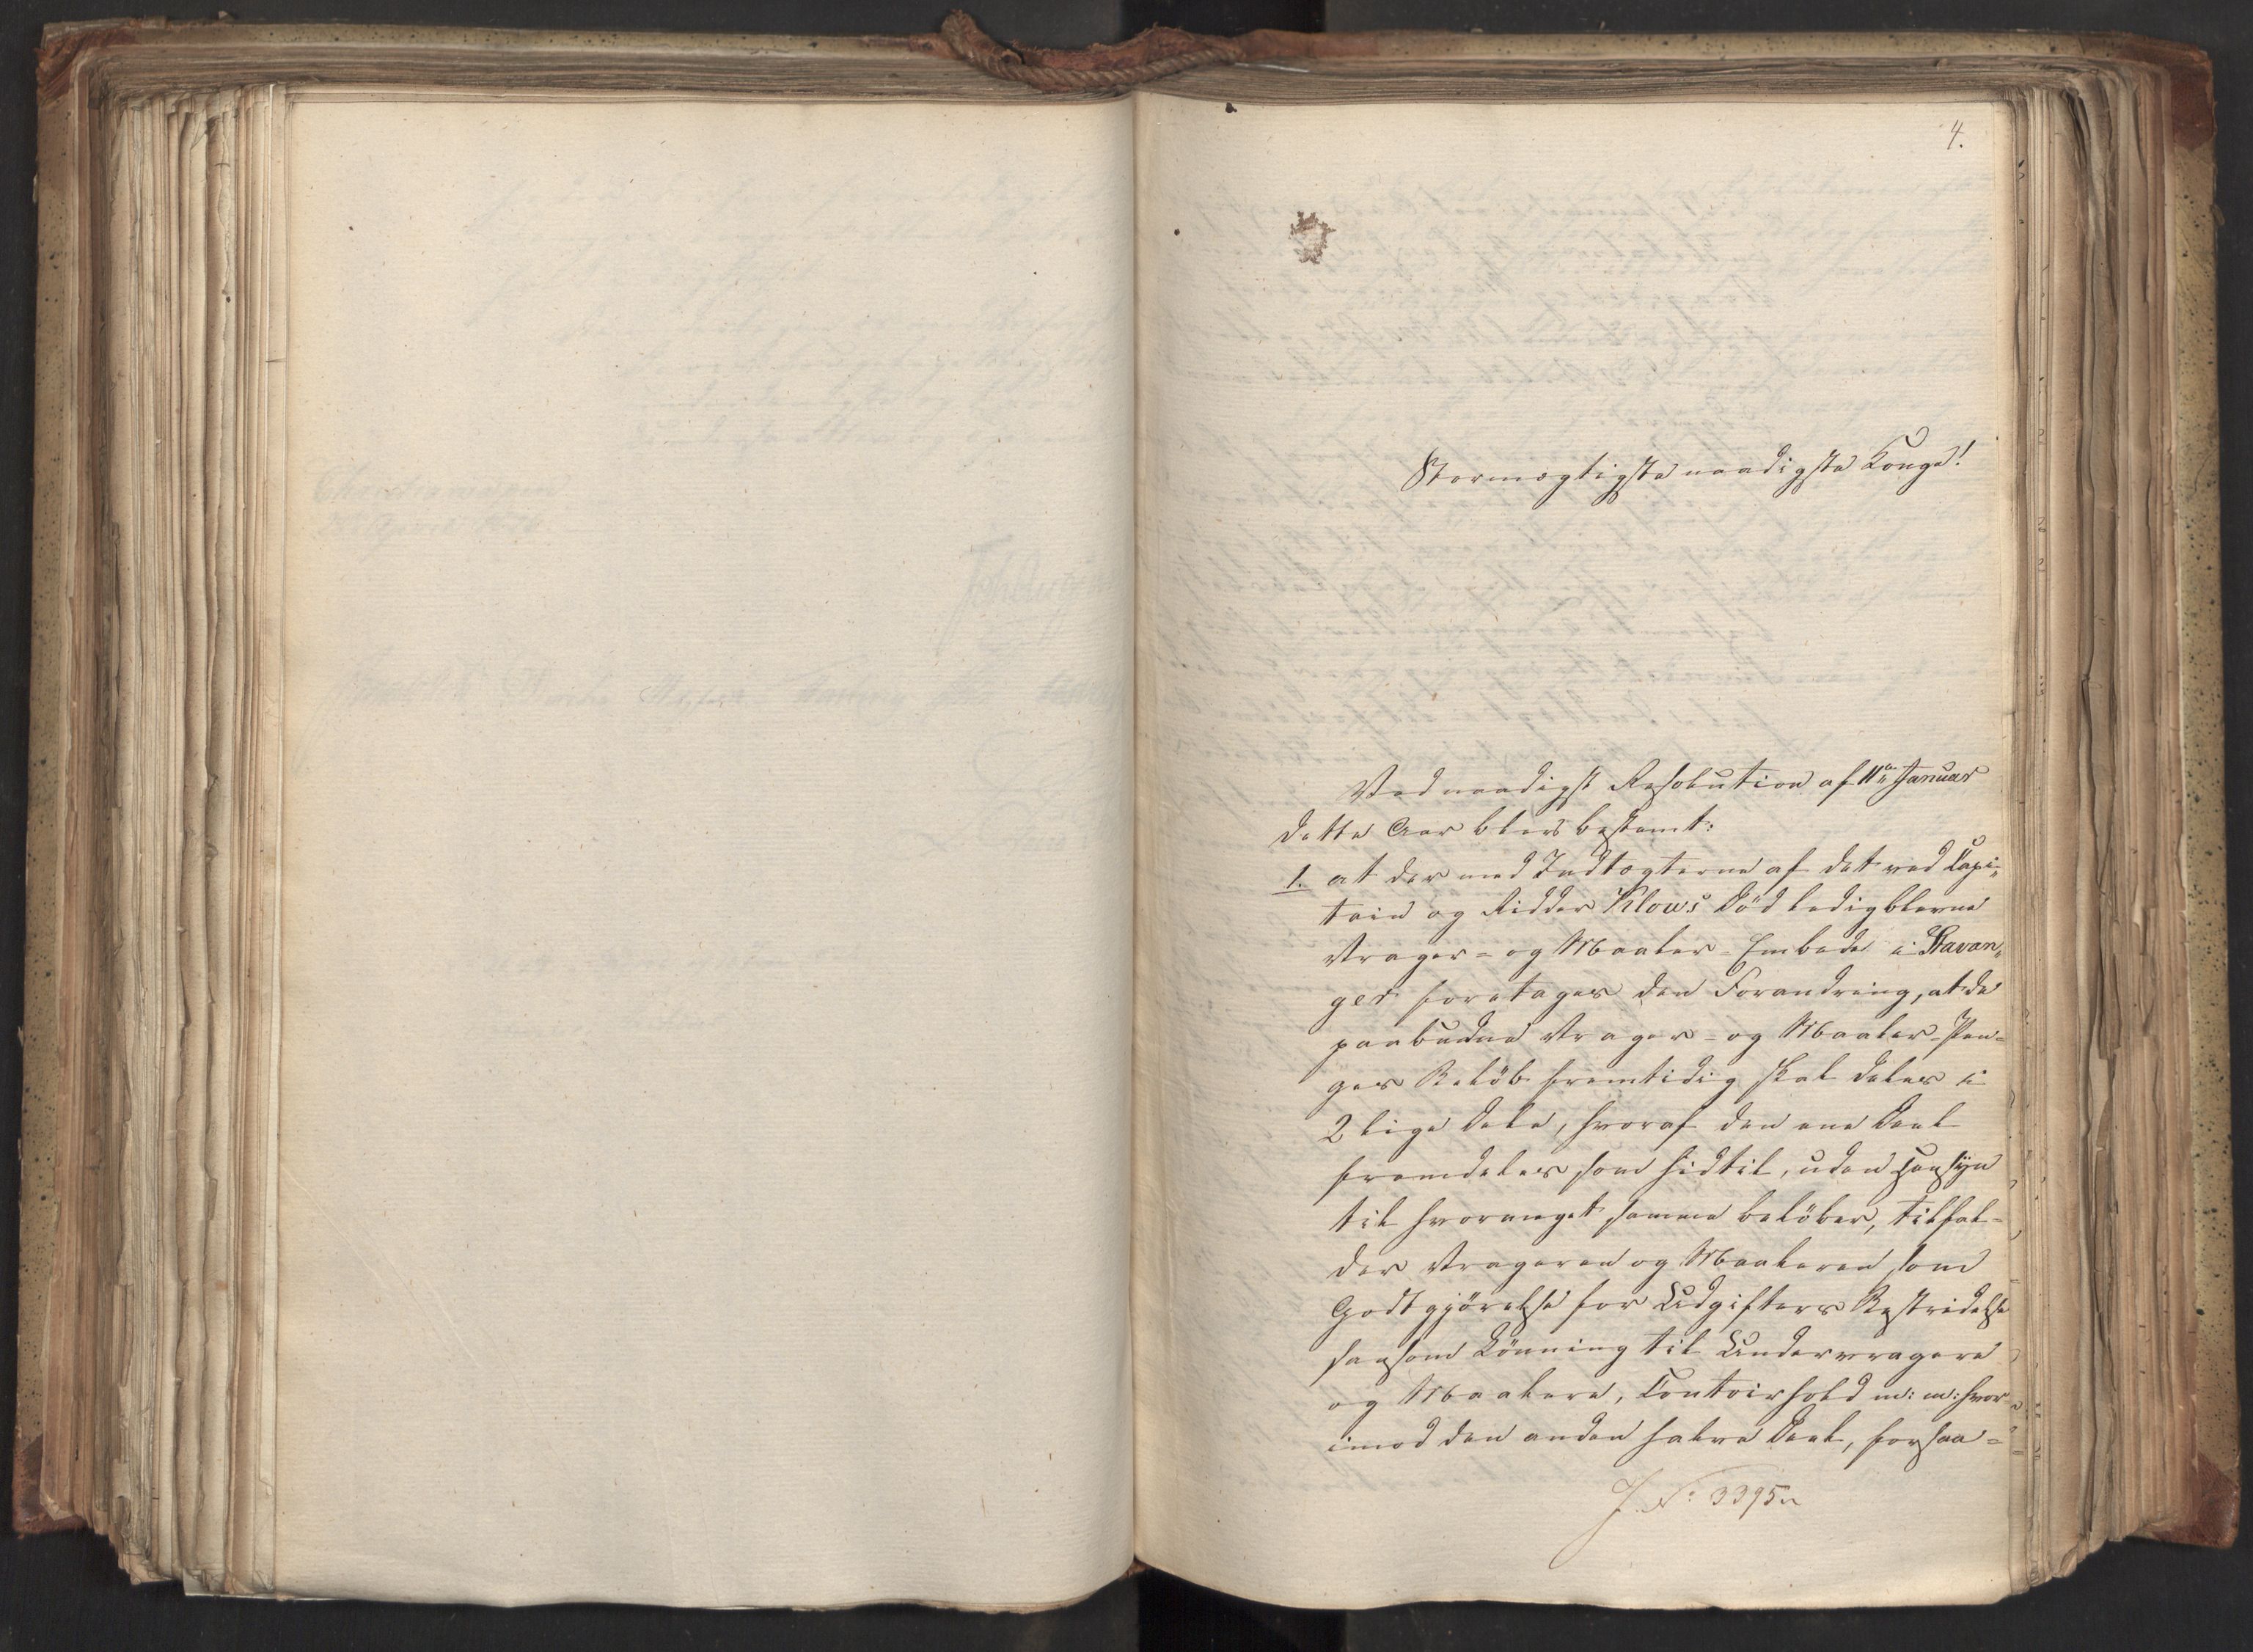 4.
Stormægtigste naadigste Konge!
Ved naadigst Resolution af 11te Januar
dette Aar blev bestemt:
1. at der med Indtægterne af det ved Capi-
tain og Ridder Klows Död ledigblevne
Vrager- og Maaler-Embede i Stavan-
ger foretages den Forandring, at de
paabudne Vrager- og Maaler-Pen-
ges Belöb fremtidig skal deles i
2 lige Dele, hvoraf den ene Deel
fremdeles som hidtil, uden Hensyn
til hvormeget samme belöber, tilfal-
der Vrageren og Maaleren som
Godtgjörelse for Udgifters Bestridelse
saasom Lönning til Undervragere
og Maalere, Contoirhold m: m: hvor-
imod den anden halve Deel, forsaa-
J. No: 3395